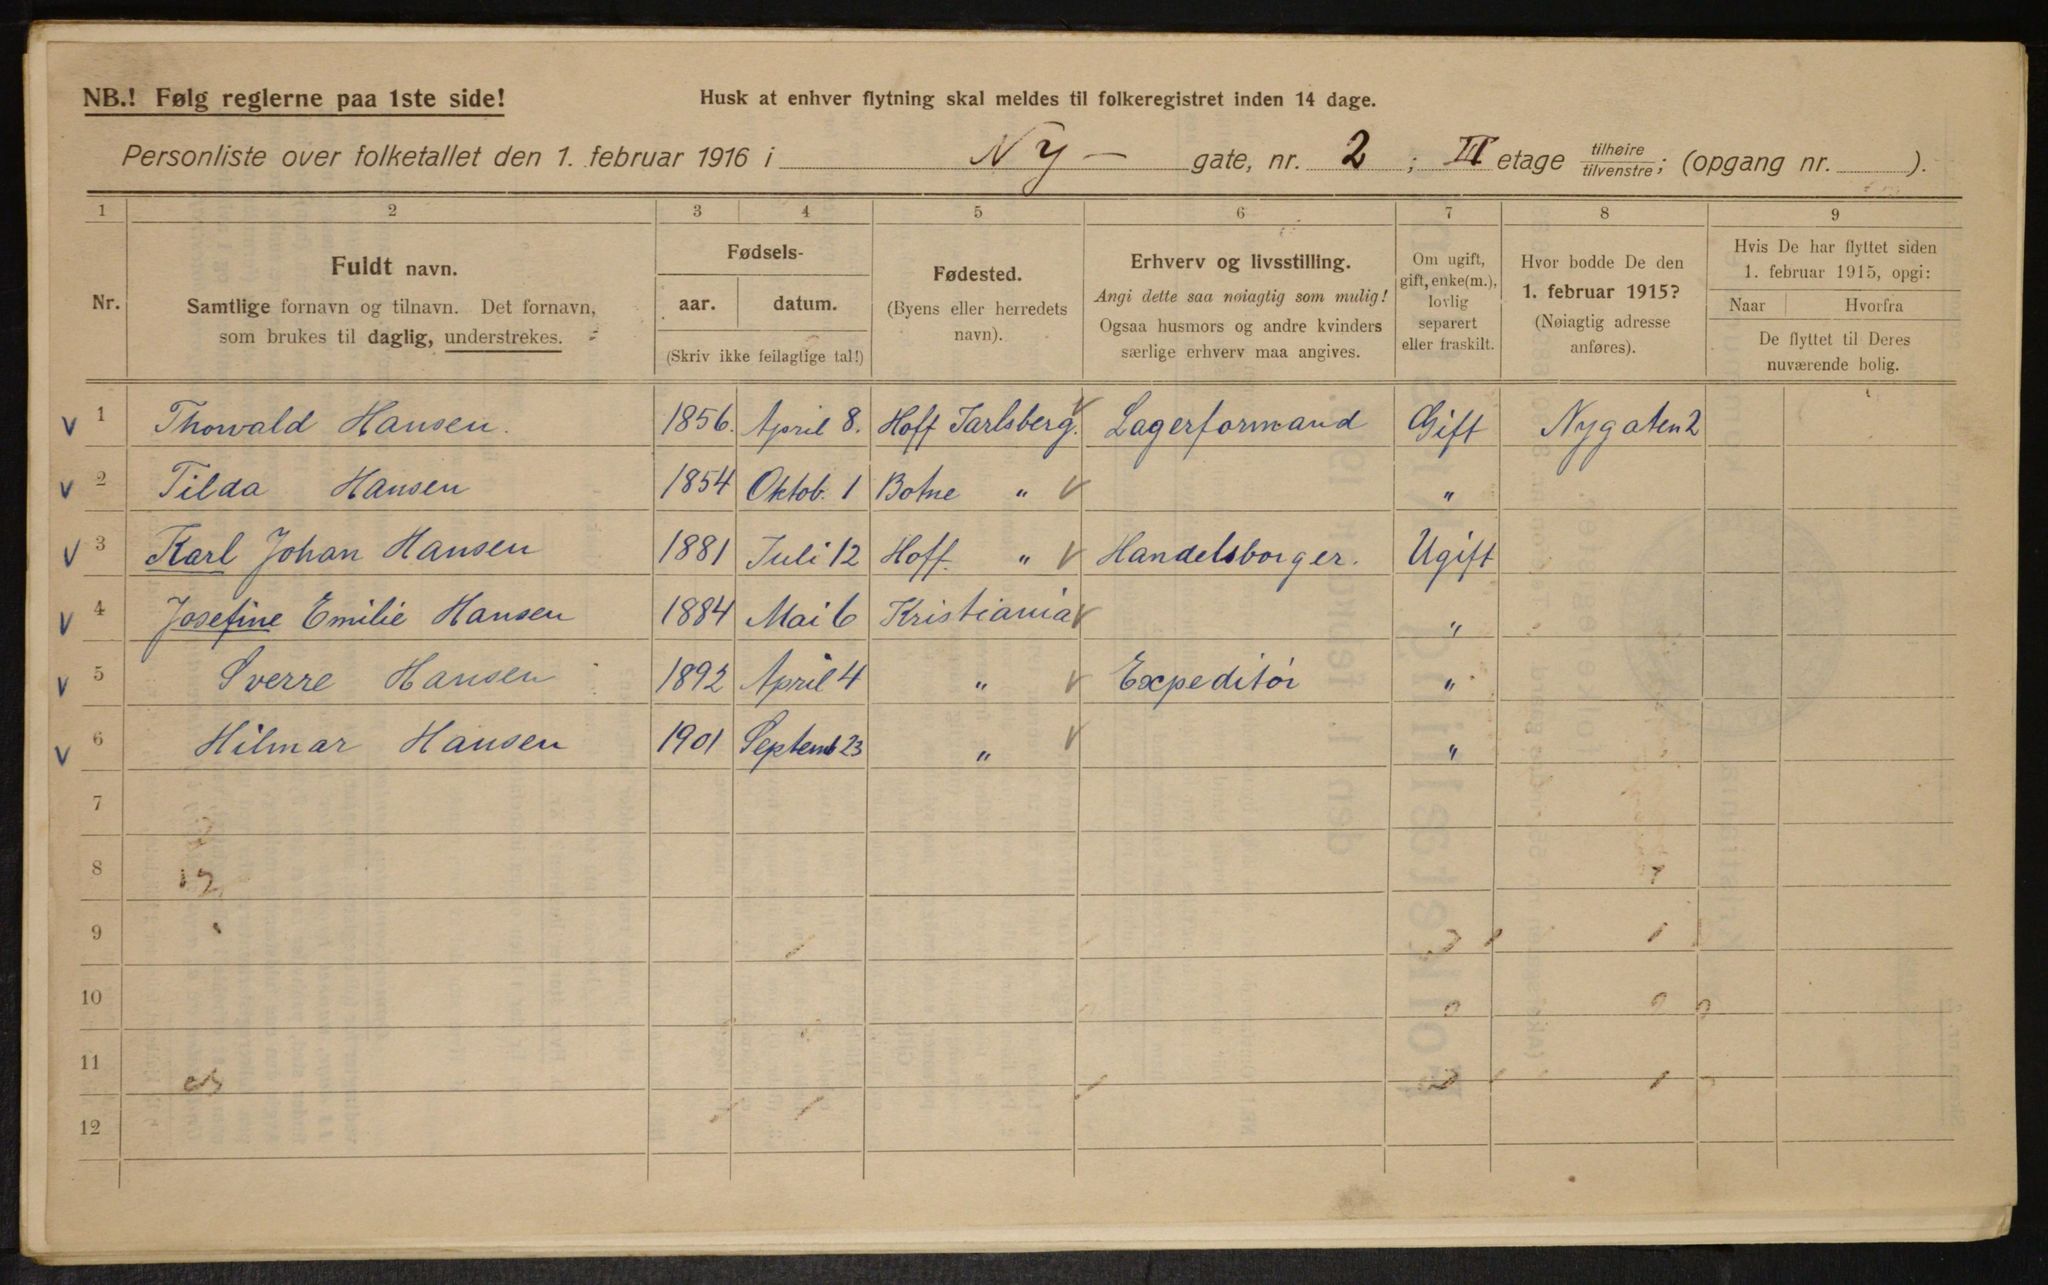 NB.! Følg reglerne paa 1ste side!
Husk at enhver flytning skal meldes til folkeregistret inden 14 dage.
Personliste over folketallet den 1. februar 1916 i Ny - gate, nr. 2; III etage tilhøire/tilvenstre; (opgang nr. ).
1 2 3 4 5 6 7 8 9
Nr.
Fuldt navn.
Samtlige fornavn og tilnavn. Det fornavn,
som brukes til daglig, understrekes.
Fødsels-
aar. datum.
(Skriv ikke feilagtige tal!)
Fødested.
(Byens eller herredets
navn).
Erhverv og livsstilling.
Angi dette saa nøiagtig som mulig!
Ogsaa husmors og andre kvinders
særlige erhverv maa angives.
Om ugift,
gift, enke(m.),
lovlig
separert
eller fraskilt.
Hvor bodde De den
1. februar 1915?
(Nøiagtig adresse
anføres).
Hvis De har flyttet siden
1. februar 1915, opgi:
Naar Hvorfra
De flyttet til Deres
nuværende bolig.
1 Thorvald Hansen. 1856. April 8. Hoff Jarlsberg. Lagerformand Gift Nygaten 2
2 Tilda Hansen 1854 Oktob. 1 Botne " "
3 Karl Johan Hansen 1881 Juli 12 Hoff. " Handelsborger. Ugift
4 Josefine Emilie Hansen 1884 Mai 6 Kristiania "
5 Sverre Hansen 1892 April 4 " Expeditør "
6 Hilmar Hansen 1901 Septemb 23 " "
7
8
9
10
11
12